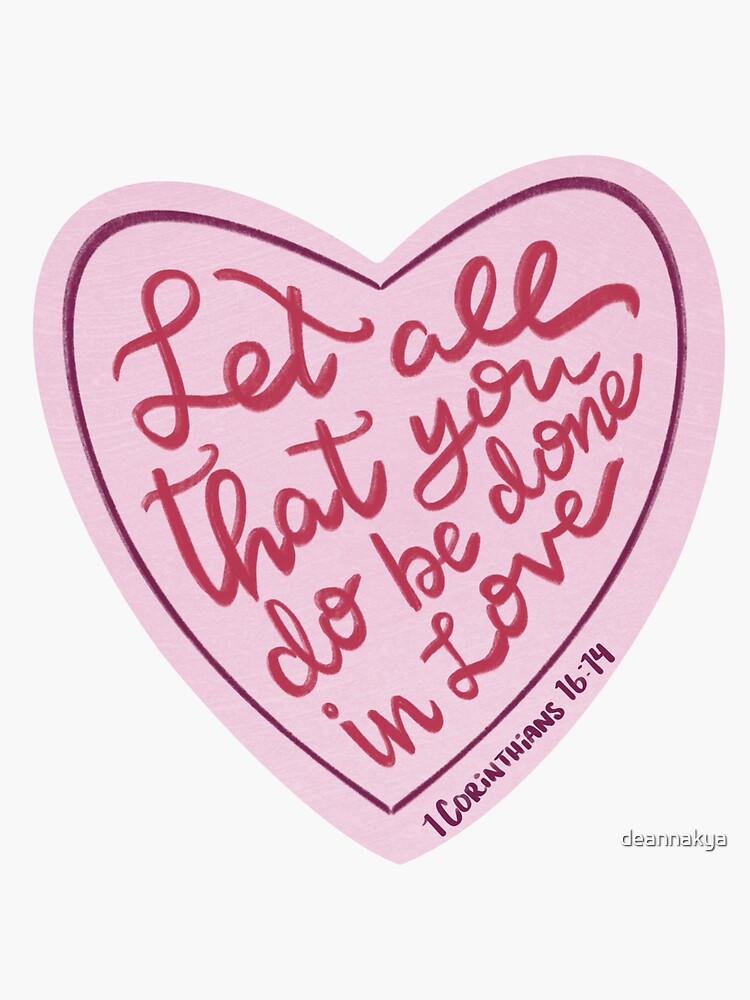 Let all
that you
do be done
in Love
1 CORINTHIANS 16:14
deannakya